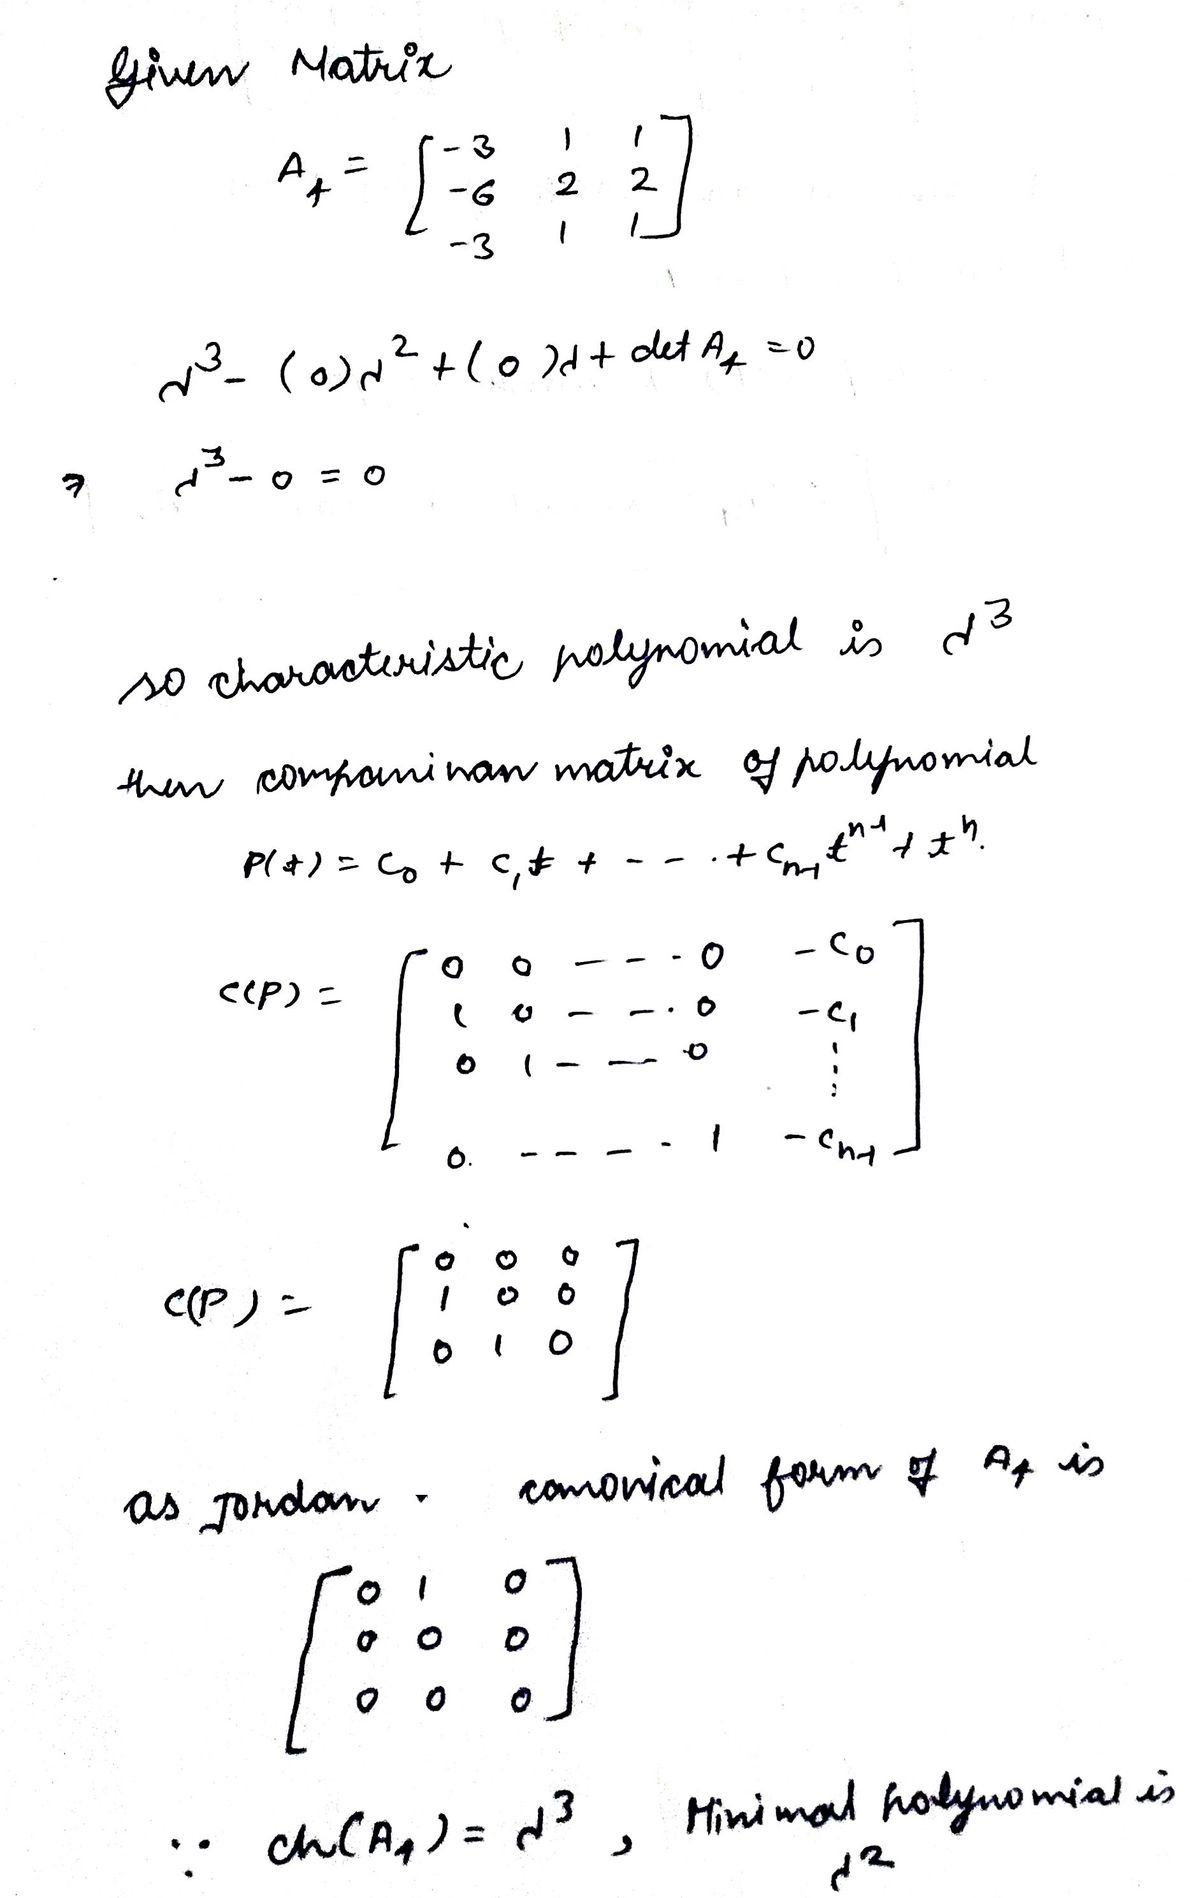 Given Matrix
A₁ = [ -3 1 1
-6 2 2
-3 1 1 ]
λ³ - (0)λ² + (0)λ + det A₁ = 0
⇒ λ³ - 0 = 0
so characteristic polynomial is λ³
then compani nan matrix of polynomial
P(t) = C₀ + C₁t + - - . + Cₙ₋₁ tⁿ⁻¹ + tⁿ.
C(P) = [ 0 0 - - - . 0 -C₀
1 0 - - . 0 -C₁
0 1 - - 0 ⋮
0. - - - - . 1 -Cₙ₋₁ ]
C(P) = [ 0 0 0
1 0 0
0 1 0 ]
as Jordan . canonical form of A₁ is
[ 0 1 0
0 0 0
0 0 0 ]
∵ ch(A₁) = λ³ , Minimal polynomial is
λ²